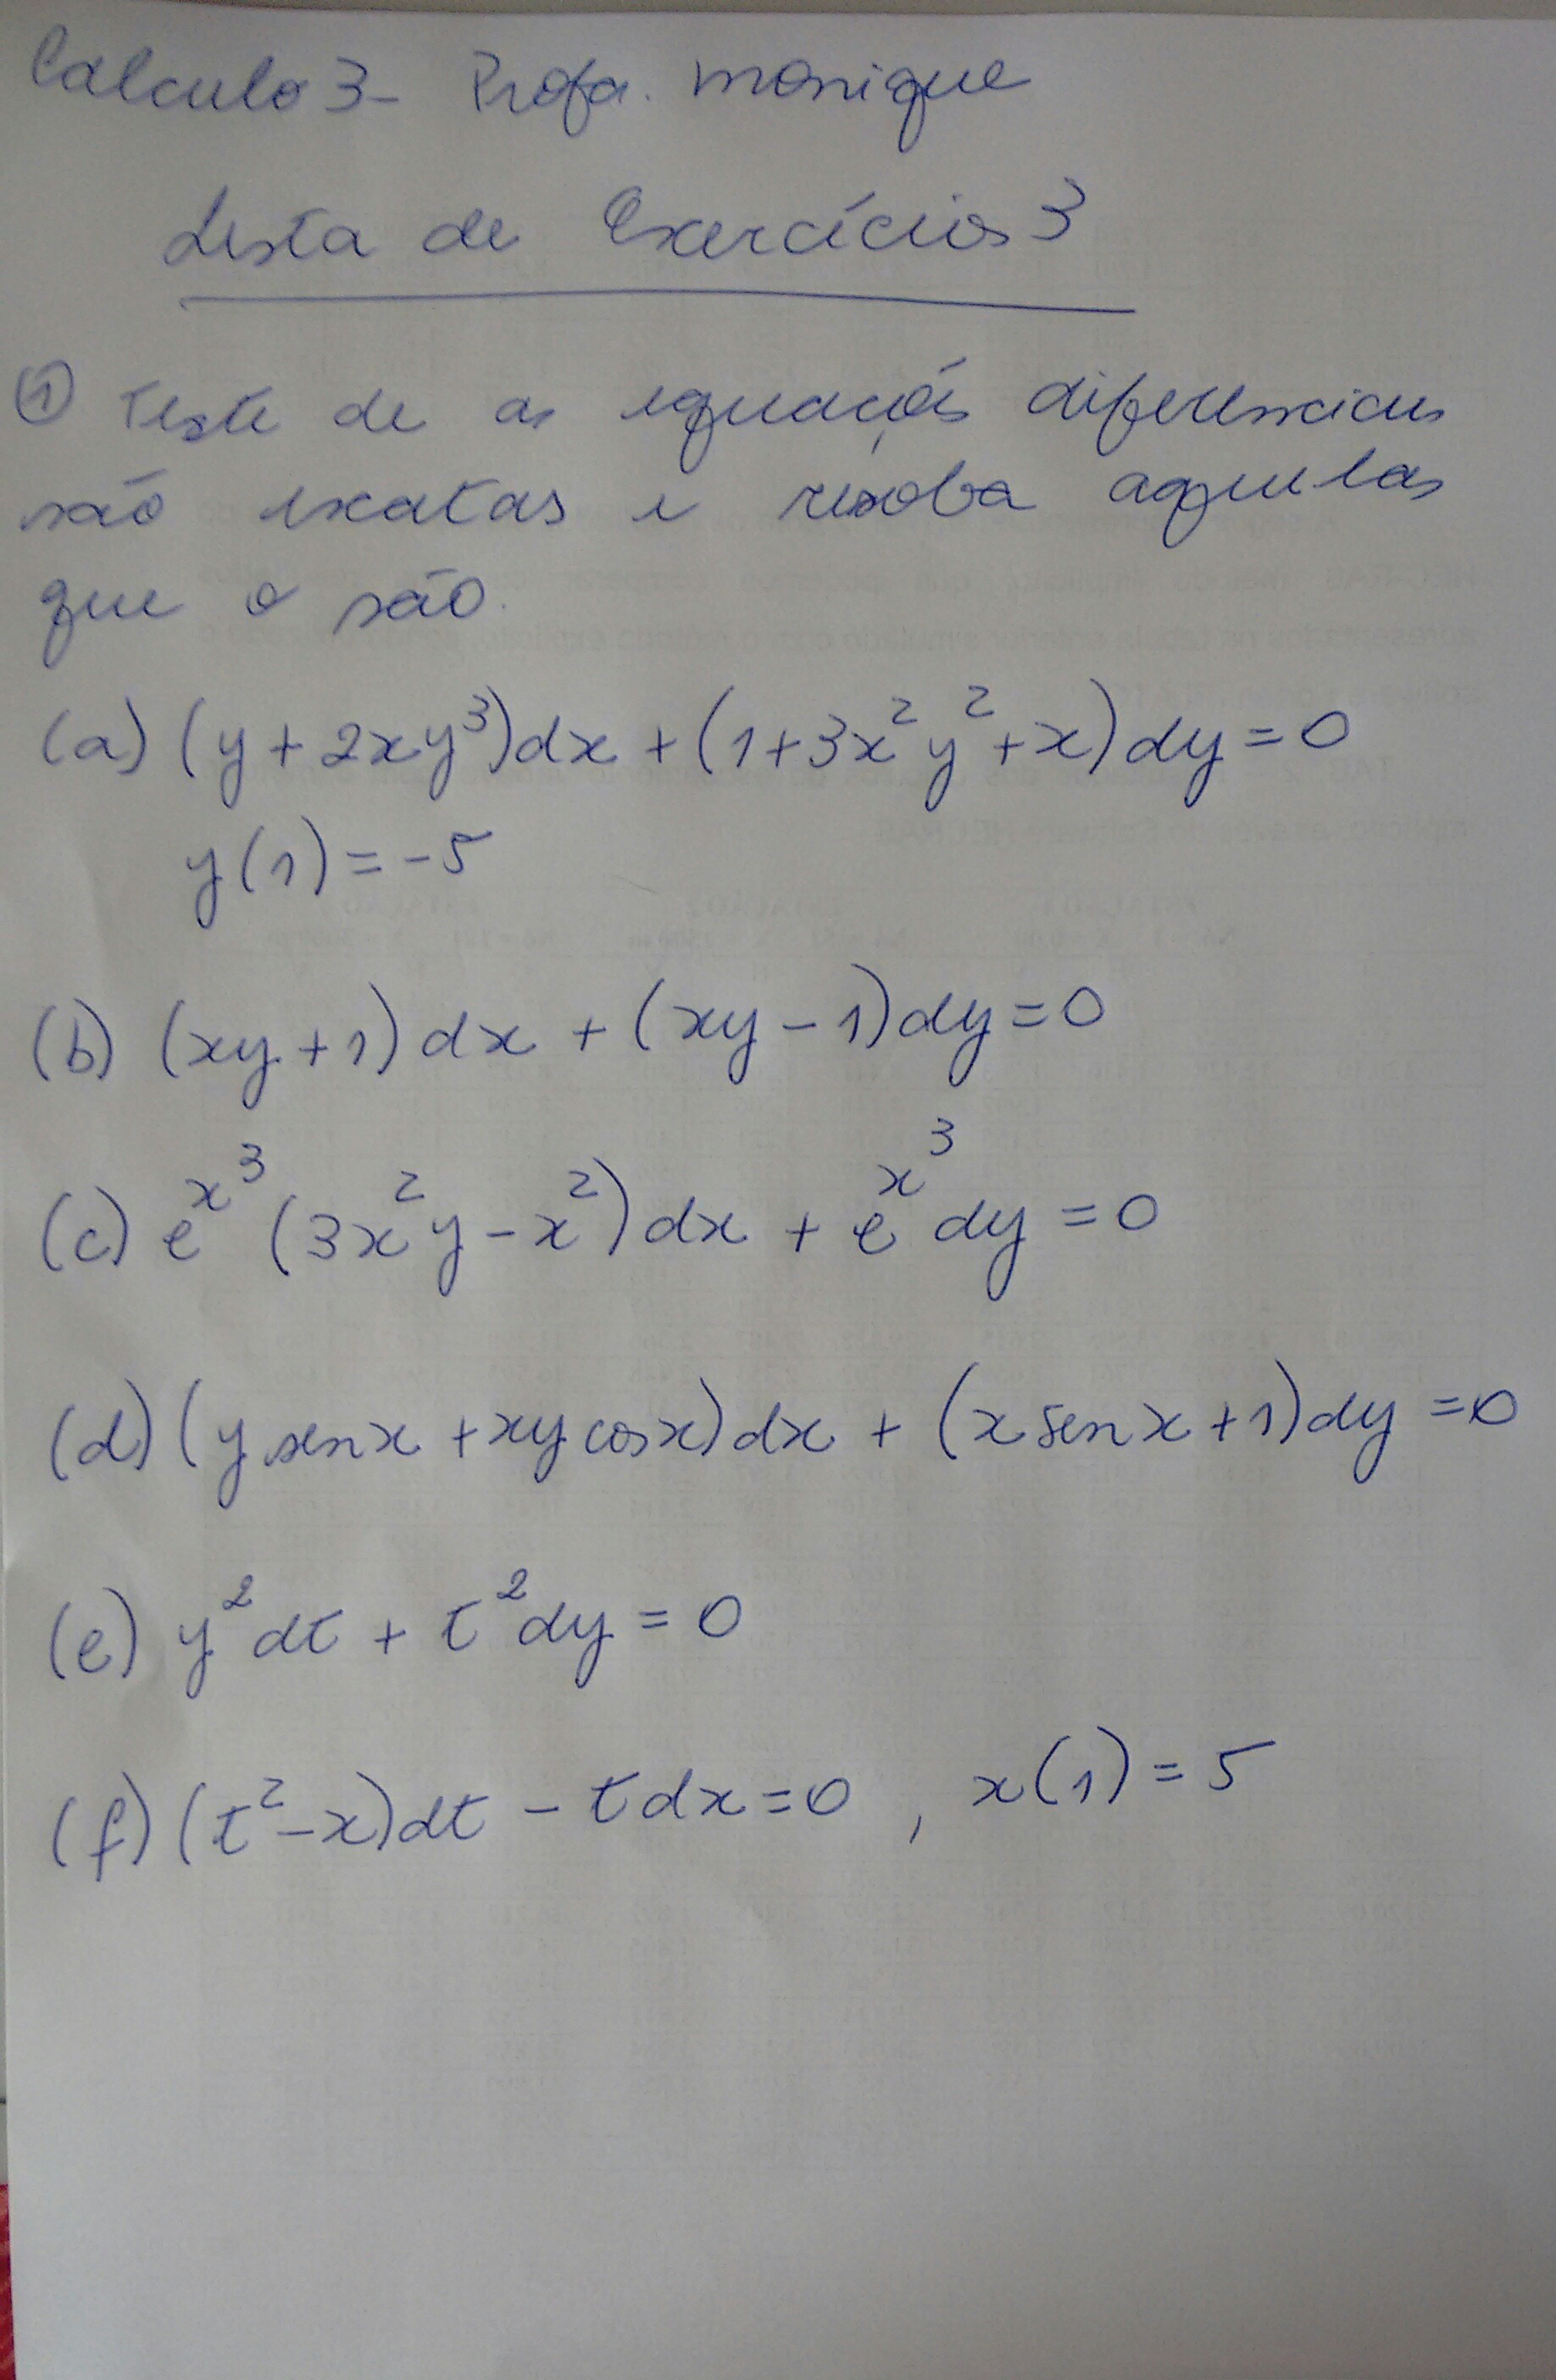 Calculo 3 - Profa. Monique
Lista de Exercícios 3
① Teste se as equações diferenciais
são exatas e resolva aquelas
que o são.
(a) (y + 2xy³)dx + (1+3x²y²+x)dy = 0
y(1) = -5
(b) (xy + 1) dx + (xy - 1)dy = 0
(c) e^x³ (3x²y - x²) dx + e^x³ dy = 0
(d) (y sen x + xy cos x) dx + (x sen x + 1) dy = 0
(e) y² dt + t² dy = 0
(f) (t² - x)dt - t dx = 0 , x(1) = 5